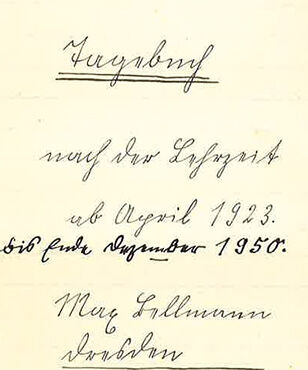 Tagebuch
nach der Lehrzeit
ab April 1923.
bis Ende Dezember 1950.
Max Bellmann
Dresden